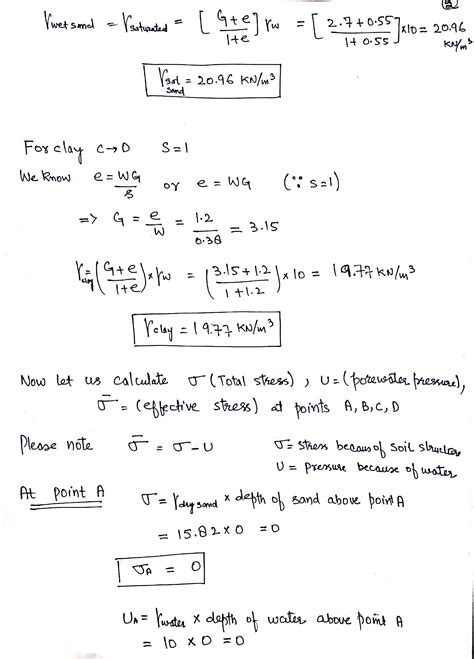 ②
γwet sand = γsaturated = [G+e / 1+e] γw = [2.7+0.55 / 1+0.55] ×10 = 20.96 KN/m³
γsat sand = 20.96 KN/m³
For clay C→D S=1
We know e = WG/S or e = WG (∵ S=1)
=> G = e/W = 1.2/0.38 = 3.15
γclay = (G+e / 1+e) × γw = (3.15+1.2 / 1+1.2) × 10 = 19.77 KN/m³
γclay = 19.77 KN/m³
Now let us calculate σ (Total stress), U = (porewater pressure),
σ̄ = (effective stress) at points A, B, C, D
Please note σ̄ = σ - U σ = stress becaus of soil structure
U = pressure because of water
At point A σ = γdry sand × depth of sand above point A
= 15.82 × 0 = 0
σA = 0
UA = γwater × depth of water above point A
= 10 × 0 = 0